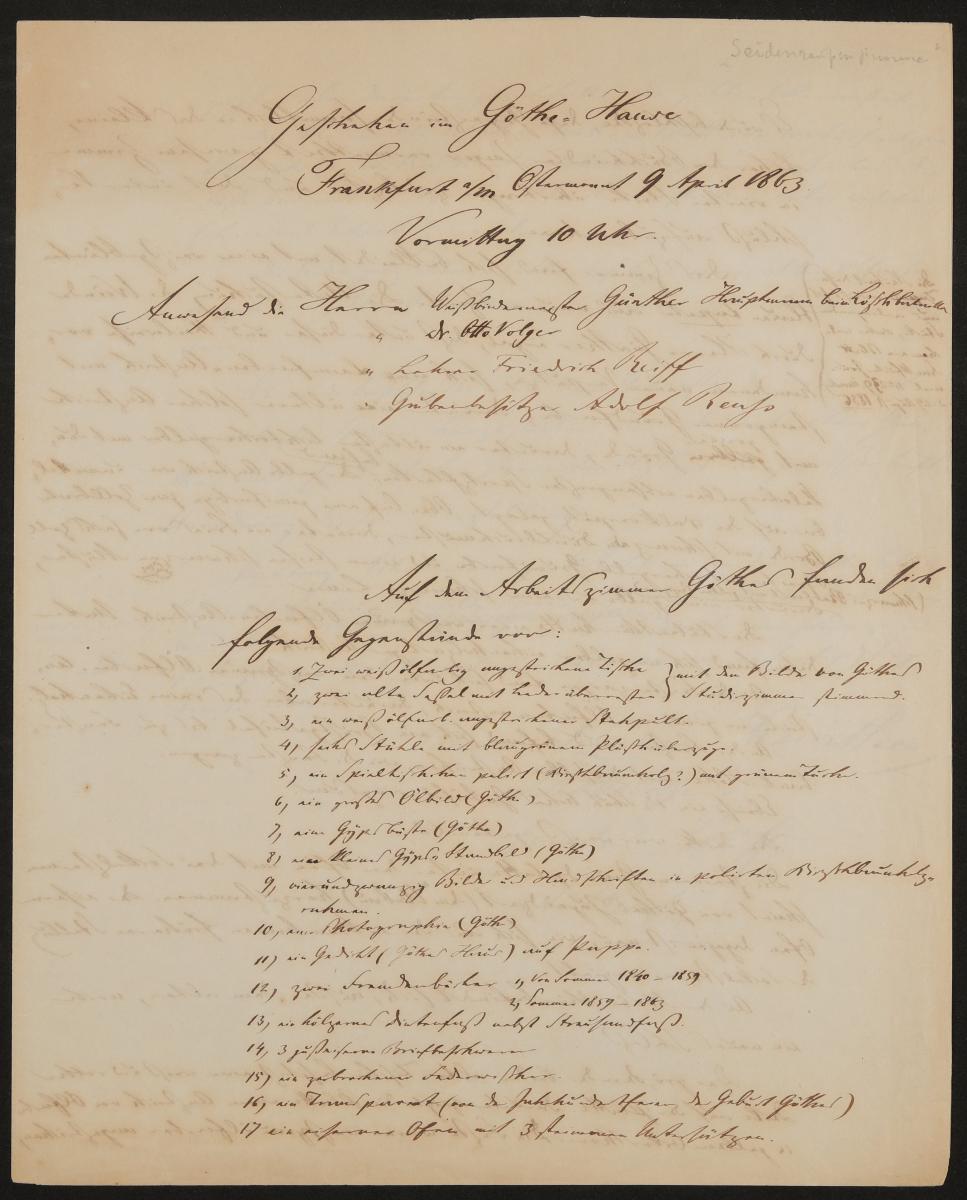 Geschehen im Göthe-Hause
Frankfurt a/m Ostermonat 9 April 1863
Vormittag 10 Uhr.
Anwesend die Herrn Weißbindermeister Günther Hauptmann beim
" Dr. Otto Volger
" Lehrer Friedrich Reiff
" Gutsbesitzer Adolf Reuß
Auf dem Arbeitszimmer Göthes fanden sich
folgende Gegenstände vor:
1, Zwei weiß ölfarbig angestrichene Tische } mit dem Bilde von Göthes
2, zwei alte Sessel mit Lederüberresten } Studirzimmer stimmend.
3, ein weiß ölfarb. angestrichenes Stehpult.
4, sechs Stühle mit blaugrünem Plüschüberzuge.
5, ein Spieltischchen polirt (Kirschbaumholz?) mit grünem Tuche.
6, ein großes Ölbild (Göthe)
7, eine Gypsbüste (Göthe)
8, ein kleines Gyps Standbild (Göthe)
9, vierundzwanzig Bilder und Handschriften in polirten Kirschbaumholz-
rahmen.
10, eine Photographie (Göthe)
11, ein Gedicht (Göthes Haus) auf Pappe.
12, zwei Fremdenbücher 1, Von Sommer 1840 – 1859
2, Sommer 1859 – 1863
13, ein hölzernes Dintenfaß nebst Streusandfaß.
14, 3 gußeiserne Briefbeschwerer
15, ein zerbrochener Federwischer.
16, ein Transparent (von der Jahrhundertfeier der Geburt Göthes)
17 ein eiserner Ofen mit 3 steinernen Untersätzen.